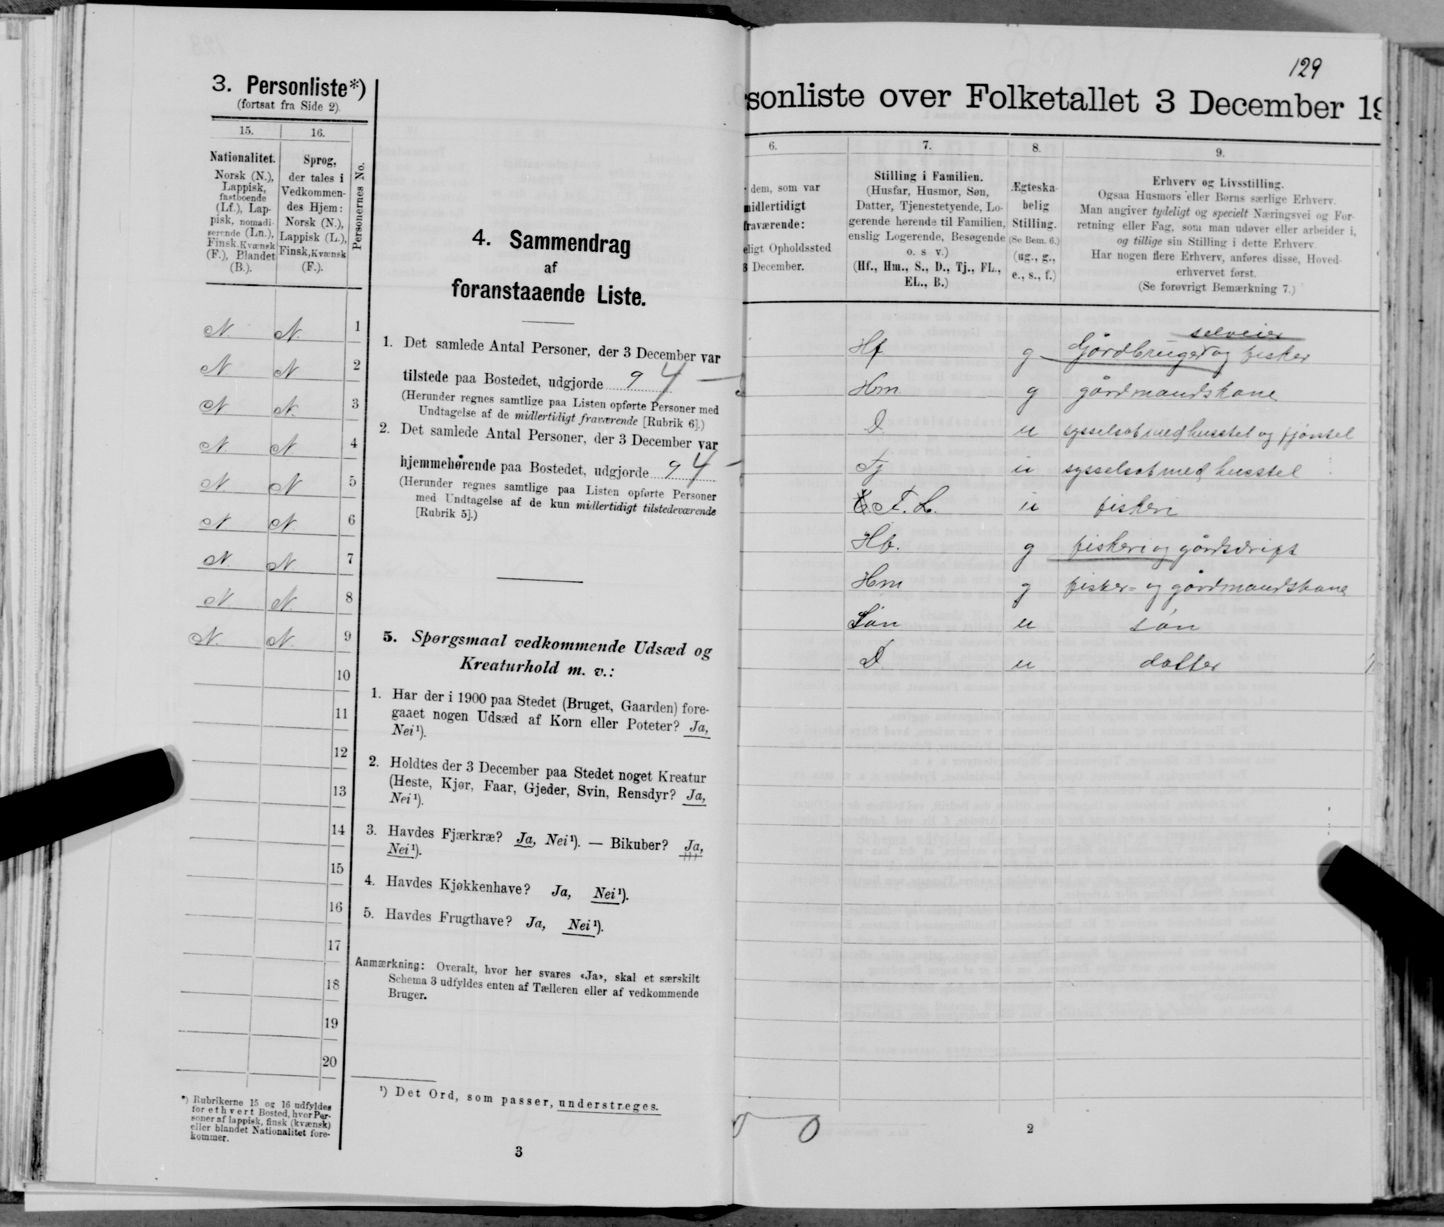 3. Personliste*)
(fortsat fra Side 2).
15.
16.
Personernes No.
Nationalitet.
Norsk (N.),
Lappisk,
fastboende
(Lf.), Lap-
pisk, nomadi-
serende (Ln.),
Finsk, Kvænsk
(F.), Blandet
(B.).
Sprog,
der tales i
Vedkommen-
des Hjem:
Norsk (N.),
Lappisk (L.),
Finsk, Kvænsk
(F.).
N. N. 1
N N 2
N N. 3
N. N 4
N N 5
N N 6
N N 7
N N 8
N. N. 9
10
11
12
13
14
15
16
17
18
19
20
*) Rubrikerne 15 og 16 udfyldes
for ethvert Bosted, hvor Per-
soner af lappisk, finsk (kvænsk)
eller blandet Nationalitet fore-
kommer.
4. Sammendrag
af
foranstaaende Liste.
1. Det samlede Antal Personer, der 3 December var
tilstede paa Bostedet, udgjorde 9 4
(Herunder regnes samtlige paa Listen opførte Personer med
Undtagelse af de midlertidigt fraværende [Rubrik 6].)
2. Det samlede Antal Personer, der 3 December var
hjemmehørende paa Bostedet, udgjorde 9 4
(Herunder regnes samtlige paa Listen opførte Personer
med Undtagelse af de kun midlertidigt tilstedeværende
[Rubrik 5].)
5. Spørgsmaal vedkommende Udsæd og
Kreaturhold m. v.:
1. Har der i 1900 paa Stedet (Bruget, Gaarden) fore-
gaaet nogen Udsæd af Korn eller Poteter? Ja,
Nei¹).
2. Holdtes der 3 December paa Stedet noget Kreatur
(Heste, Kjør, Faar, Gjeder, Svin, Rensdyr? Ja,
Nei¹).
3. Havdes Fjærkræ? Ja, Nei¹). — Bikuber? Ja,
Nei¹).
4. Havdes Kjøkkenhave? Ja, Nei¹).
5. Havdes Frugthave? Ja, Nei¹).
Anmærkning: Overalt, hvor her svares «Ja», skal et særskilt
Schema 3 udfyldes enten af Tælleren eller af vedkommende
Bruger.
¹) Det Ord, som passer, understreges.
3
129
sonliste over Folketallet 3 December 19
6.
7.
8.
9.
dem, som var
midlertidigt
fraværende:
eligt Opholdssted
3 December.
Stilling i Familien.
(Husfar, Husmor, Søn,
Datter, Tjenestetyende, Lo-
gerende hørende til Familien,
enslig Logerende, Besøgende
o. s v.)
(Hf., Hm., S., D., Tj., FL.,
EL., B.)
Ægteska-
belig
Stilling.
(Se Bem. 6.)
(ug., g.,
e., s., f.)
Erhverv og Livsstilling.
Ogsaa Husmors eller Børns særlige Erhverv.
Man angiver tydeligt og specielt Næringsvei og For-
retning eller Fag, som man udøver eller arbeider i,
og tillige sin Stilling i dette Erhverv.
Har nogen flere Erhverv, anføres disse, Hoved-
erhvervet først.
(Se forøvrigt Bemærkning 7.)
selveier
Hf g Gårdbruger og fisker
Hm g gårdmandskone
D u sysselsat med husstel og fjøsstel
Tj u sysselsat med husstel
F. L. u fiskeri
Hf. g fiskeri og gårdsdrift
Hm g fisker- og gårdmandskone
Søn u søn
D u datter
0
2